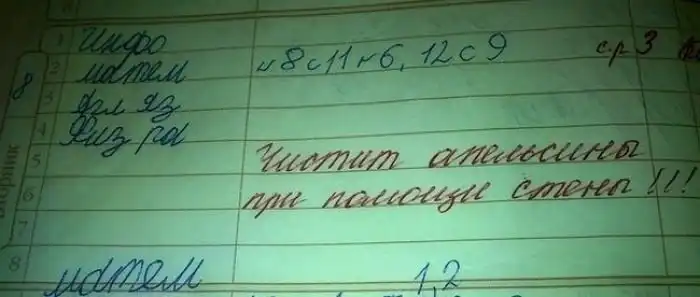 1 Инфо
2 матем №8 с11 №6, 12 с 9 с.р 3
3 Ягл яз
4 Физ ра
8
Вторник
5 Чистит апельсины
6 при помощи стены!!!
7
8 матем 1,2